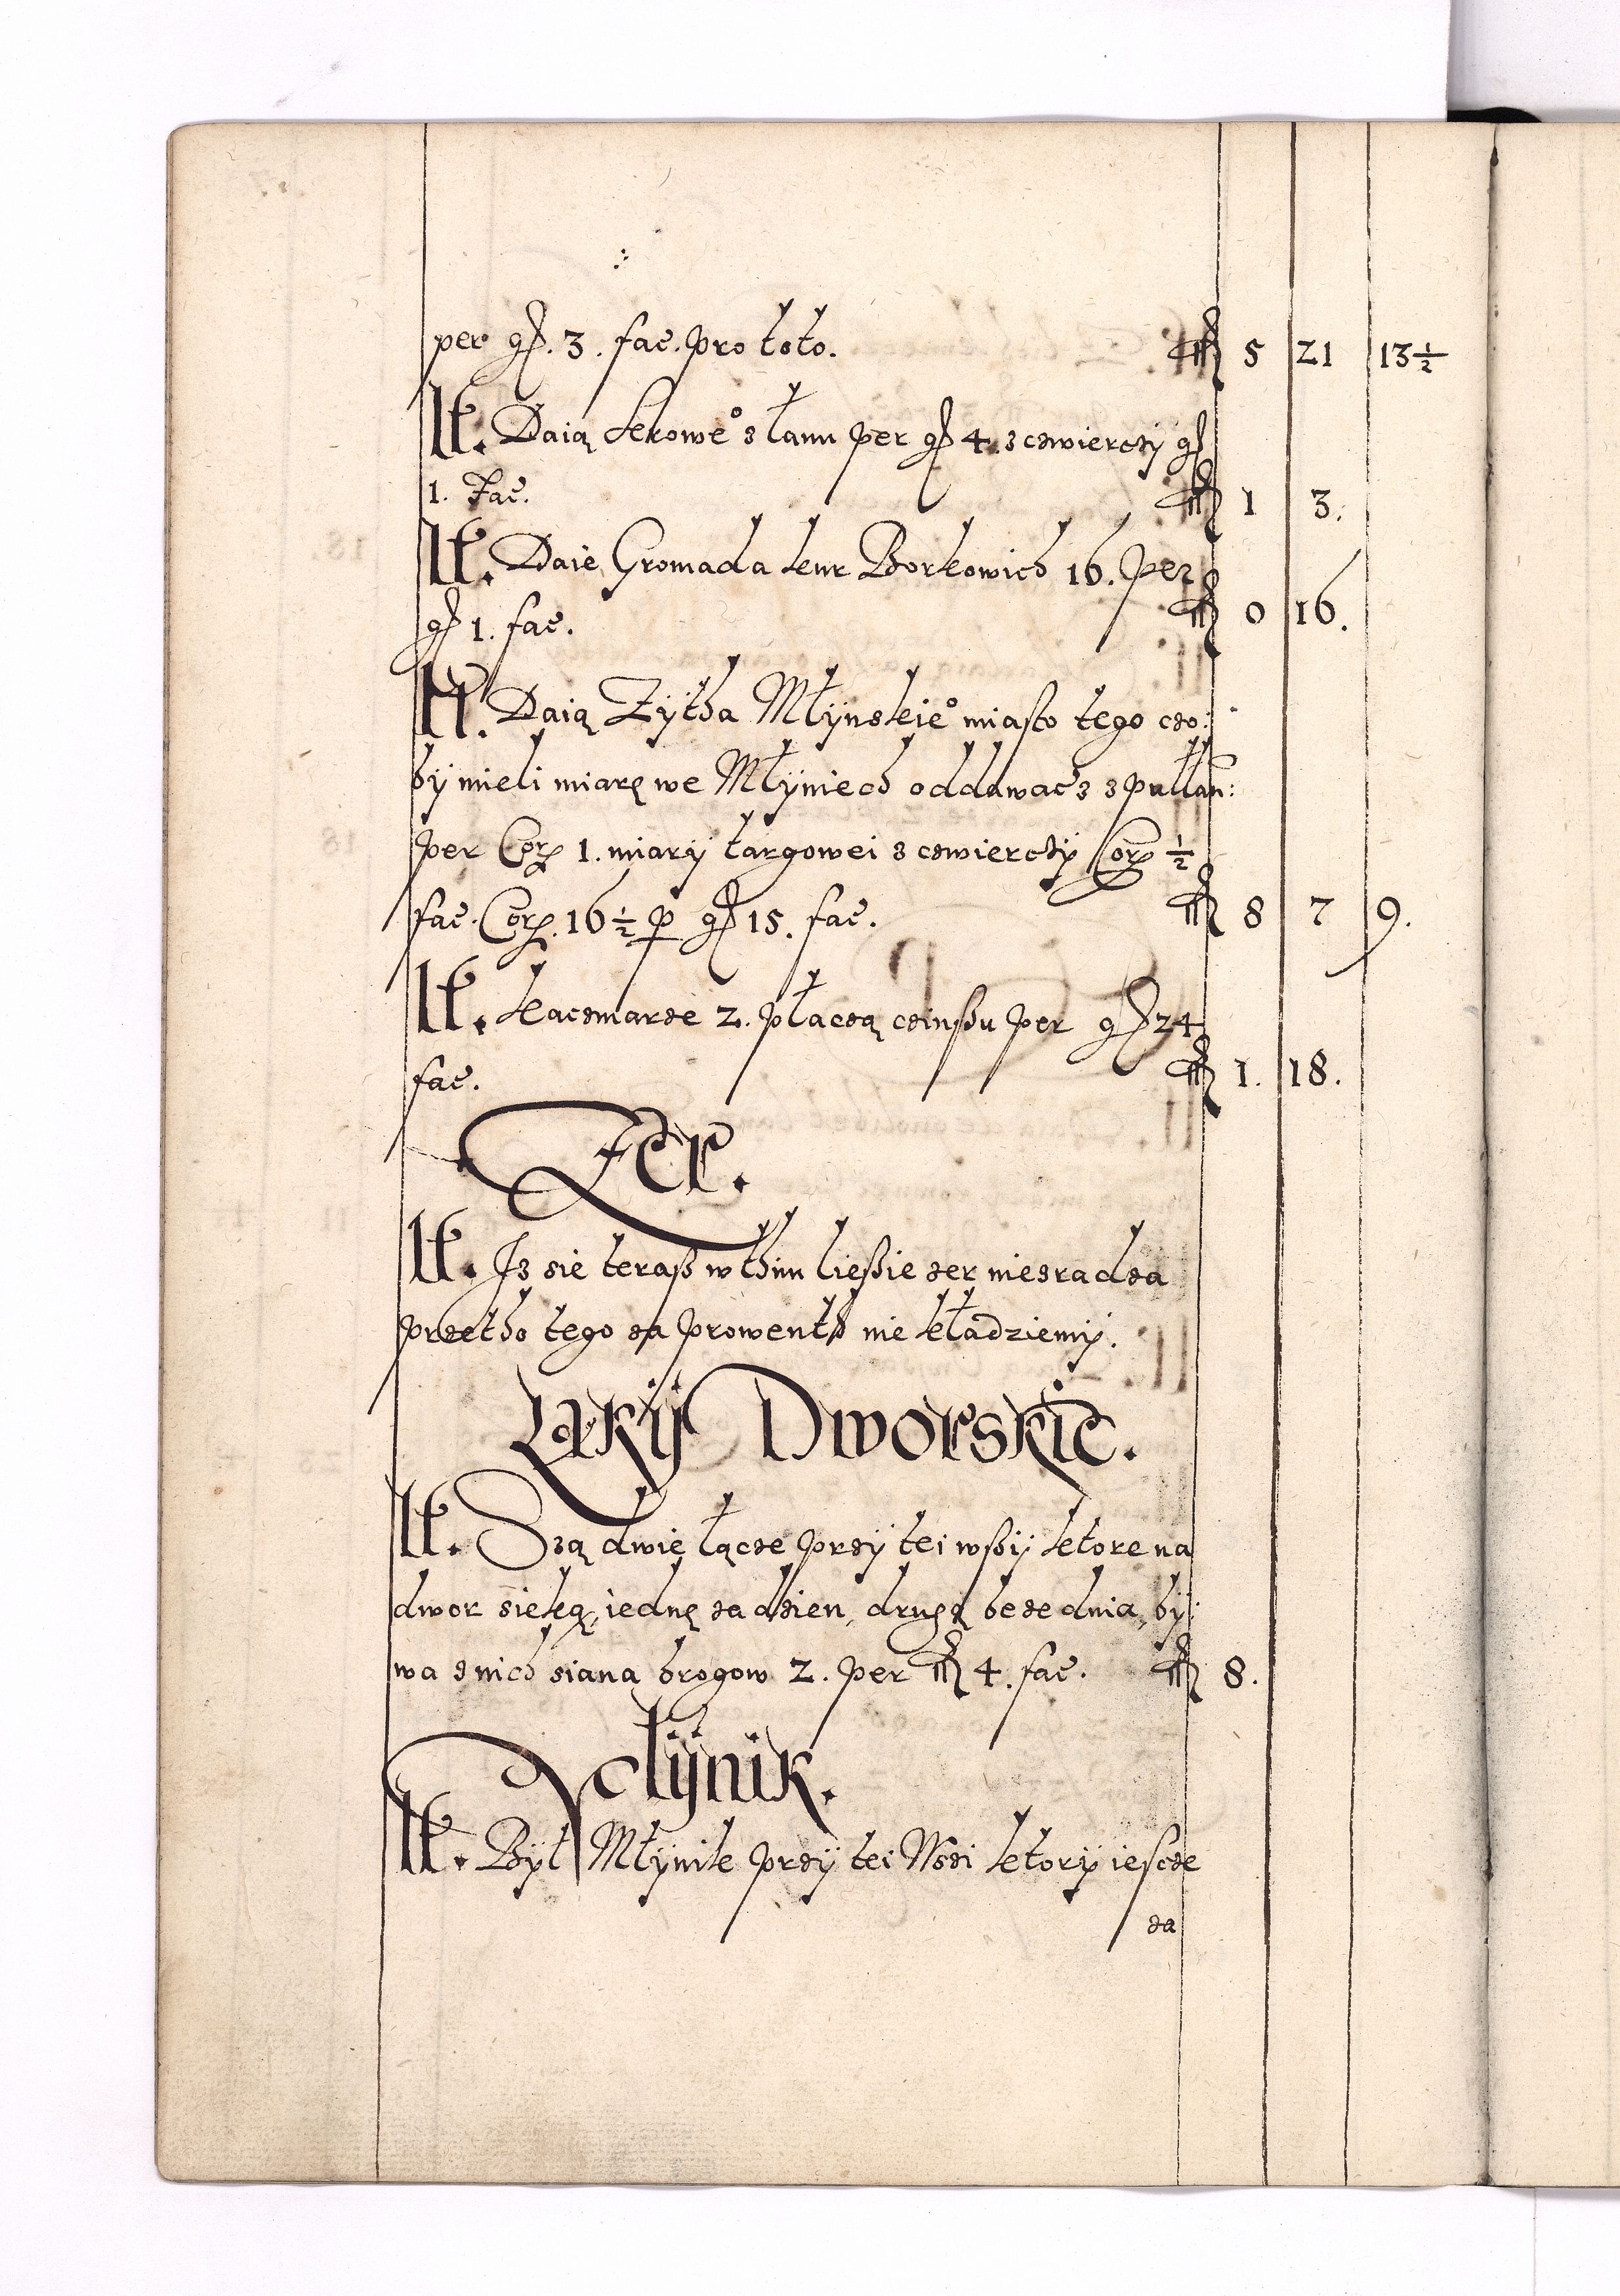 per gr. 3. fac. pro toto. fl 5 21 13½
It. Daią Sekowe° z łanu per gr 4. z czwierczÿ gr
1. Fac. fl 1 3.
It. Daie Gromada kur Borkowich 16. Per
gr 1. fac. fl 0 16.
It. Daią Zÿtha Młÿnskie° miasto tego czo:
bÿ mieli miarę we Młÿniech oddawacz z pułłan:
per Cor. 1. miarÿ targowei z czwierczÿ Cor. ½
fac. Cor. 16½ p gr 15. fac. fl 8 7 9.
It. Kaczmarze 2. płaczą czinshu per gr 24
fac. fl 1. 18.
Zer.
It. Iz sie teraß w thim ließie zer niezradza
przetho tego za prowenth nie kładziemÿ.
Łąkÿ Dworskie.
It. Szą dwie łącze przÿ tei wßÿ ktore na
dwor sieką, iednę za dzien, drugą beze dnia, bÿ:
wa z nich siana brogow 2. per fl 4. fac. fl 8.
Młÿnik.
It. Bÿł Młÿnik przÿ tei Wsi ktorÿ iescze
za